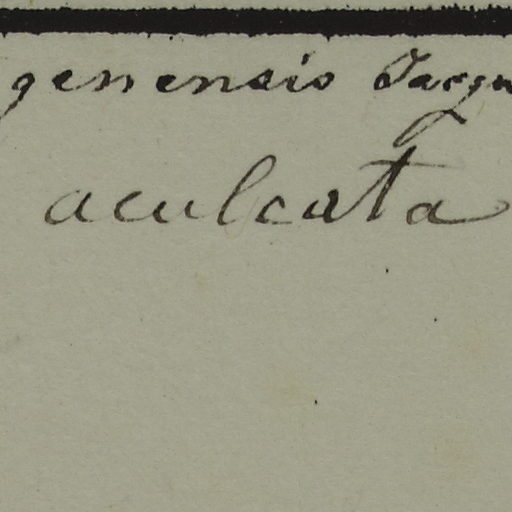 genensis Jacqu
aculeata